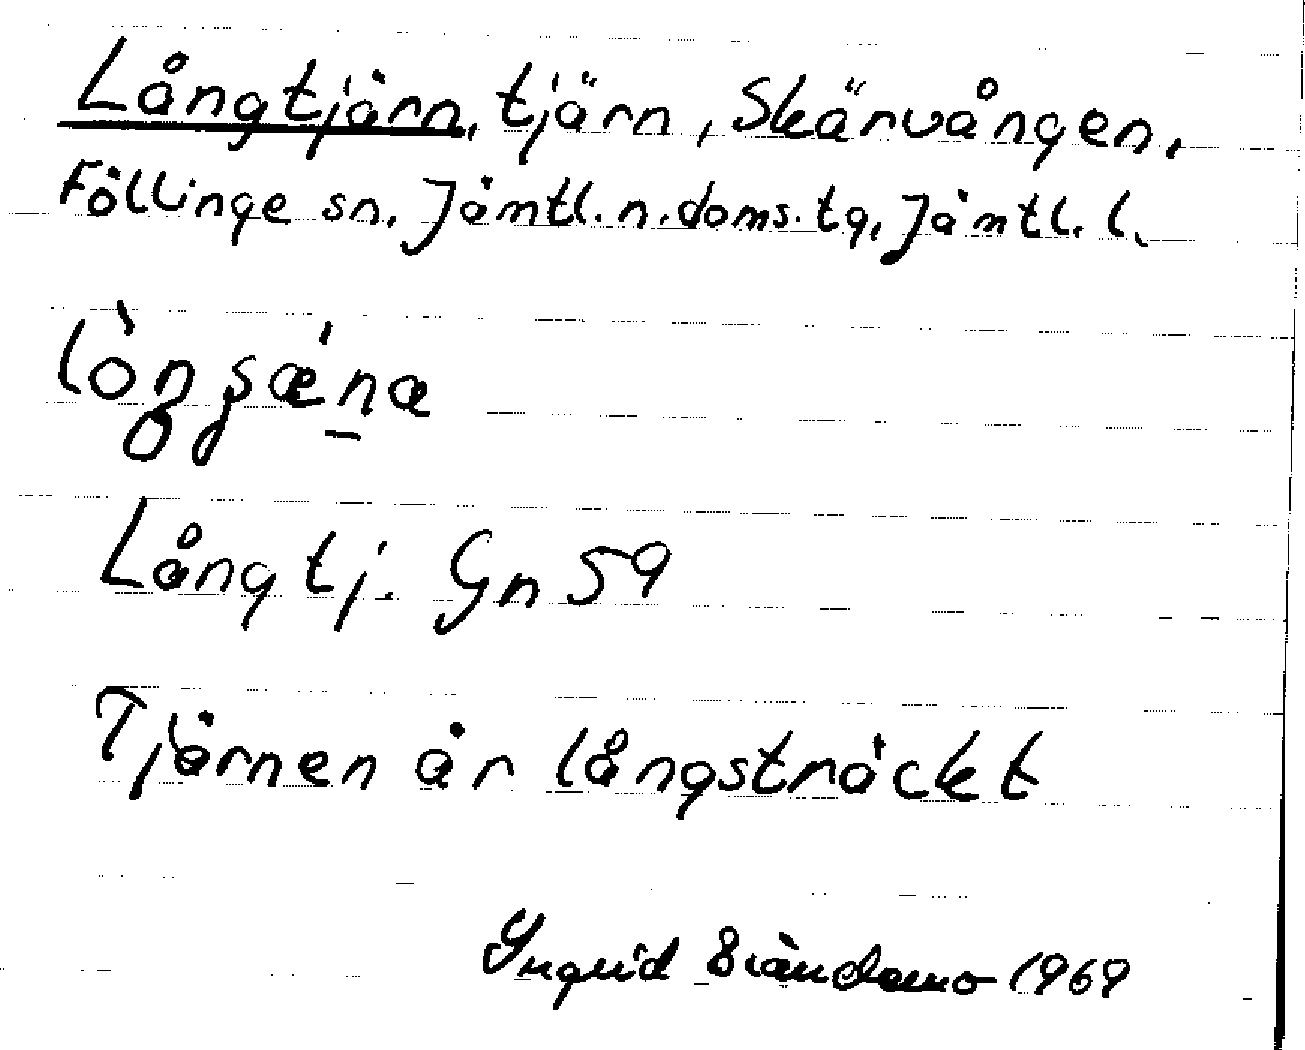 Långtjärn, tjärn, Skärvången,
Föllinge sn. Jämtl. n. doms. tg, Jämtl. l.
Långtj. Gn 59
Tjärnen är långsträckt
Ingrid 1969